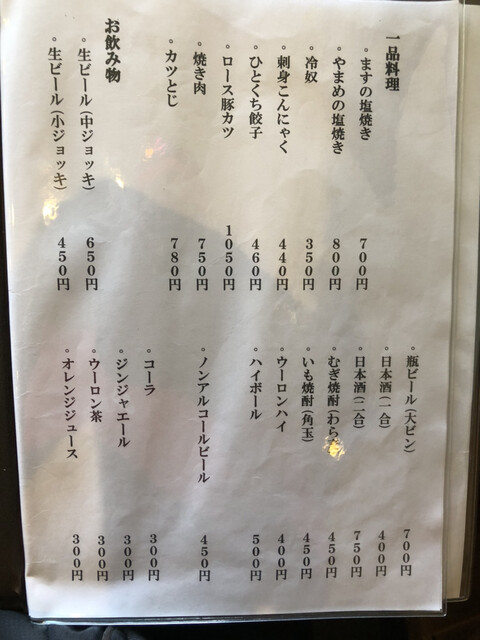 一品料理
。ますの塩焼き 700円
。やまめの塩焼き 800円
。冷奴 350円
。刺身こんにゃく 440円
。ひとくち餃子 460円
。ロース豚カツ 1050円
。焼き肉 750円
。カツとじ 780円
お飲み物
。生ビール(中ジョッキ) 650円
。生ビール(小ジョッキ) 450円
。瓶ビール(大ビン) 700円
。日本酒(一合) 400円
。日本酒(二合) 750円
。むぎ焼酎 450円
。いも焼酎(角玉) 450円
。ウーロンハイ 400円
。ハイボール 500円
。ノンアルコールビール 450円
。コーラ 300円
。ジンジャエール 300円
。ウーロン茶 300円
。オレンジジュース 300円